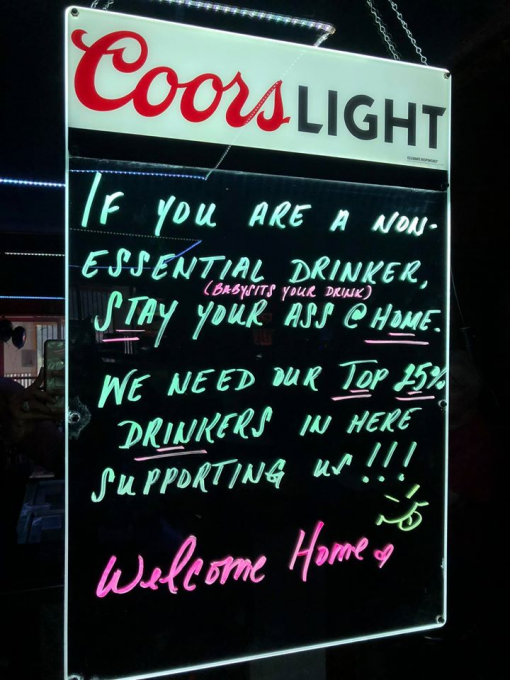 Coors LIGHT
IF YOU ARE A NON-
ESSENTIAL DRINKER,
(BABYSITS YOUR DRINK)
STAY YOUR ASS @ HOME.
WE NEED OUR TOP 25%
DRINKERS IN HERE
SUPPORTING US!!!
Welcome Home